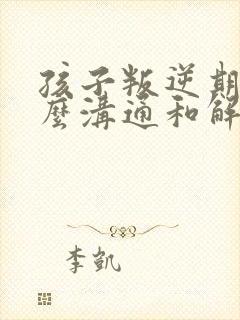 孩子叛逆期
麼溝通和解
李凱